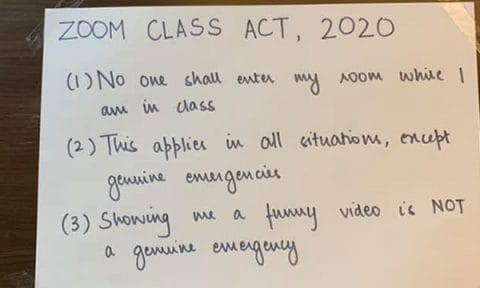 ZOOM CLASS ACT, 2020
(1) No one shall enter my room while I
am in class
(2) This applies in all situations, except
genuine emergencies
(3) Showing me a funny video is NOT
a genuine emergency